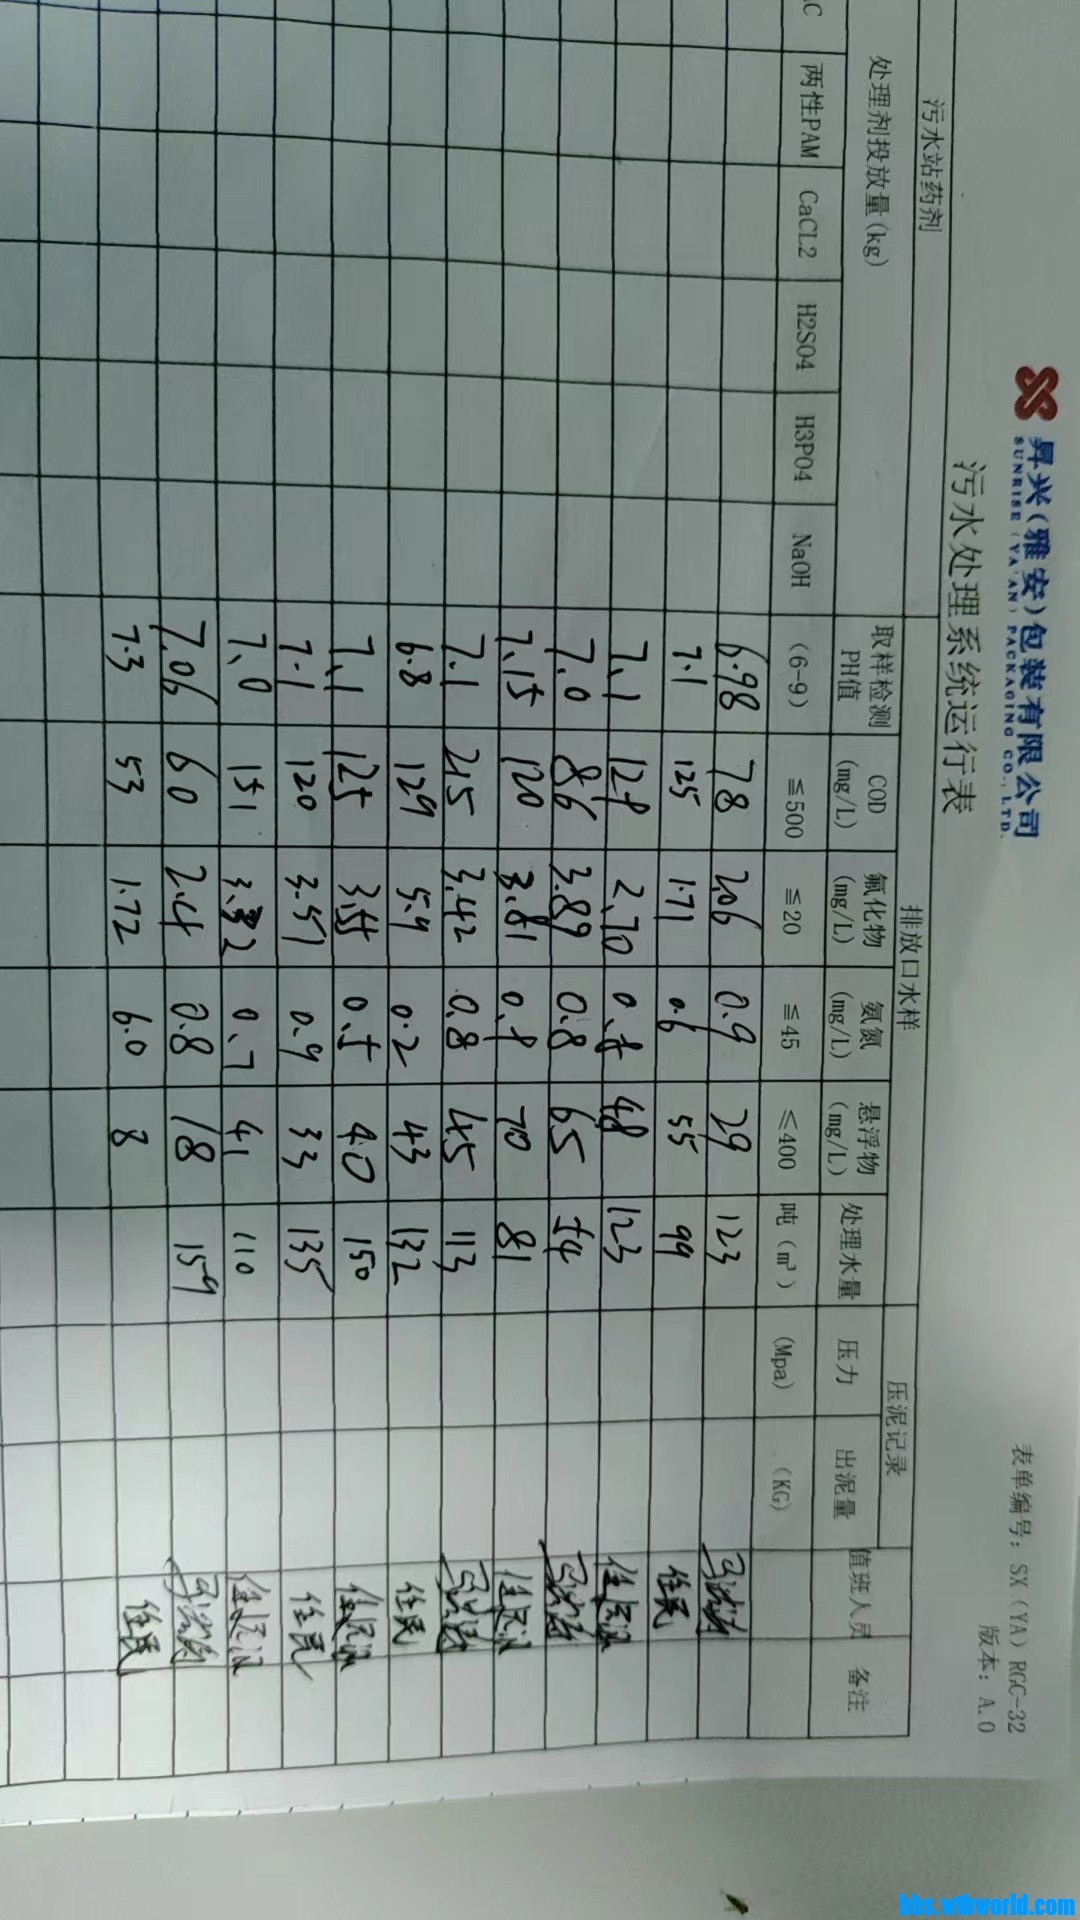 昇兴(雅安)包装有限公司
SUNRISE (YA'AN) PACKAGING CO., LTD.
表单编号: SX(YA)RGC-32
版本: A.0
污水处理系统运行表
污水站药剂 排放口水样 压泥记录 值班人员 备注
处理剂投放量(kg) 取样检测PH值 COD(mg/L) 氟化物(mg/L) 氨氮(mg/L) 悬浮物(mg/L) 处理水量 压力 出泥量
C 两性PAM CaCL2 H2SO4 H3PO4 NaOH (6-9) ≦500 ≦20 ≦45 ≤400 吨(m³) (Mpa) (KG)
6.98 78 2.06 0.9 29 123
7.1 125 1.71 0.6 55 99 任民
7.1 2.70 48 123
7.0 86 3.89 0.8 65 54
7.15 120 3.81 70 81
7.1 215 3.42 0.8 45 113
6.8 129 5.9 0.2 43 132 任民
7.1 125 3.55 0.5 40 150
7.1 120 3.57 0.9 33 135 任民
7.0 151 0.7 41 110
7.06 60 2.4 0.8 18 159
7.3 53 1.72 6.0 8 任民
bbs.wfhworld.com